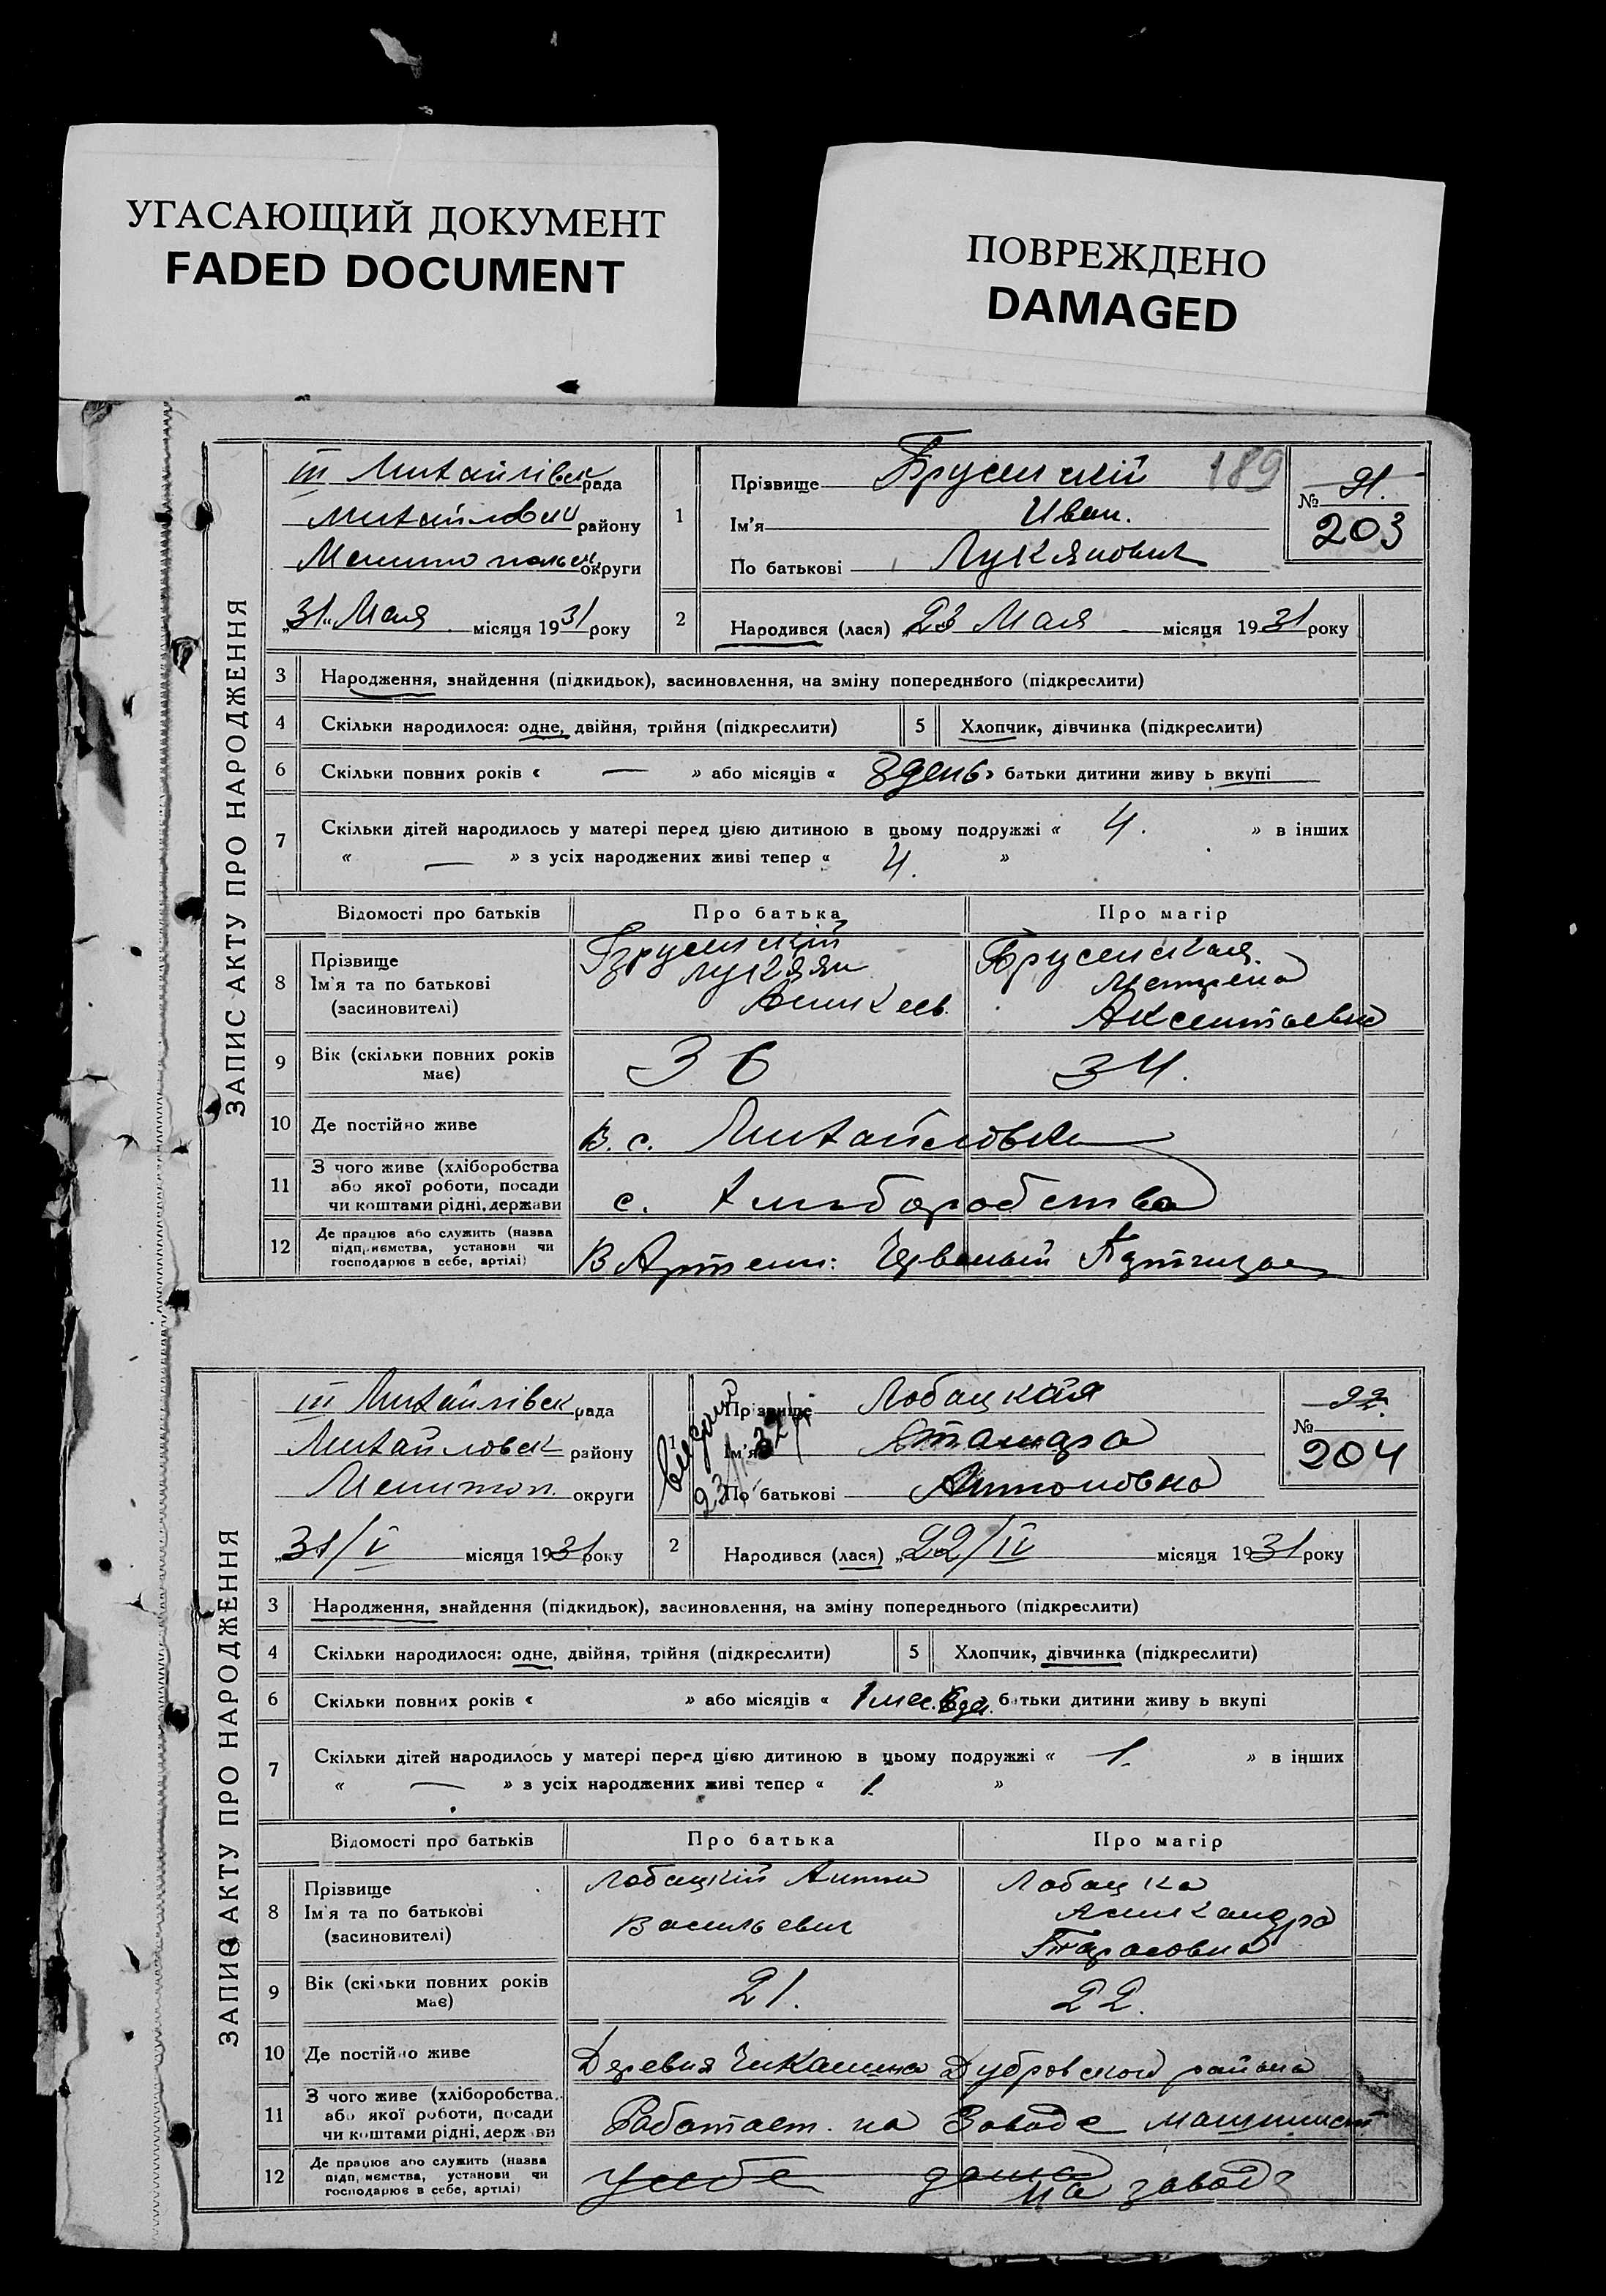 УГАСАЮЩИЙ ДОКУМЕНТ
FADED DOCUMENT
ПОВРЕЖДЕНО
DAMAGED
ЗАПИС АКТУ ПРО НАРОДЖЕННЯ
III Михайлівск рада
района району
округи
„31„ Мая місяця 1931 року
1
Прізвище 189
Ім'я Иван.
По батькові Лукянович
№ 91.
203
2 Народився (лася) „23 Мая місяця 1931 року
3 Народження, знайдення (підкидьок), засиновлення, на зміну попереднього (підкреслити)
4 Скільки народилося: одне, двійня, трійня (підкреслити) 5 Хлопчик, дівчинка (підкреслити)
6 Скільки повних років « — » або місяців « 8 день » батьки дитини живу ь вкупі
7 Скільки дітей народилось у матері перед цією дитиною в цьому подружжі « 4. » в інших
« — » з усіх народжених живі тепер « 4. »
Відомості про батьків Про батька Про матір
8 Прізвище
Ім'я та по батькові
(засновителі)
Лукян
Аксентьевна
9 Вік (скільки повних років має) 36 34.
10 Де постійно живе В. с. Михайловки
11 З чого живе (хліборобства
або якої роботи, посади
чи коштами рідні, держави с. Хлиборобства
12 Де працює або служить (назва
підприємства, установи чи
господарює в себе, артілі) В Артели:
ЗАПИС АКТУ ПРО НАРОДЖЕННЯ
III Михайлівск рада
Михайловск району
Мелитоп. округи
„31/V місяця 1931 року
1
Прізвище Лобацкая
Ім'я
По батькові Антоновна
№ 22.
204
2 Народився (лася) „22/IV місяця 1931 року
3 Народження, знайдення (підкидьок), засиновлення, на зміну попереднього (підкреслити)
4 Скільки народилося: одне, двійня, трійня (підкреслити) 5 Хлопчик, дівчинка (підкреслити)
6 Скільки повних років « » або місяців « 1 мес. батьки дитини живу ь вкупі
7 Скільки дітей народилось у матері перед цією дитиною в цьому подружжі « 1. » в інших
« — » з усіх народжених живі тепер « 1. »
Відомості про батьків Про батька Про матір
8 Прізвище
Ім'я та по батькові
(засиновителі)
Лобацкий Антон
Васильевич
Лобацка
Тарасовна
9 Вік (скільки повних років має) 21. 22.
10 Де постійно живе Деревня Дубровской района
11 З чого живе (хліборобства
або якої роботи, посади
чи коштами рідні, держави Работает на Заводе машинист
12 Де працює або служить (назва
підприємства, установи чи
господарює в себе, артілі) у себе дома
на заводе